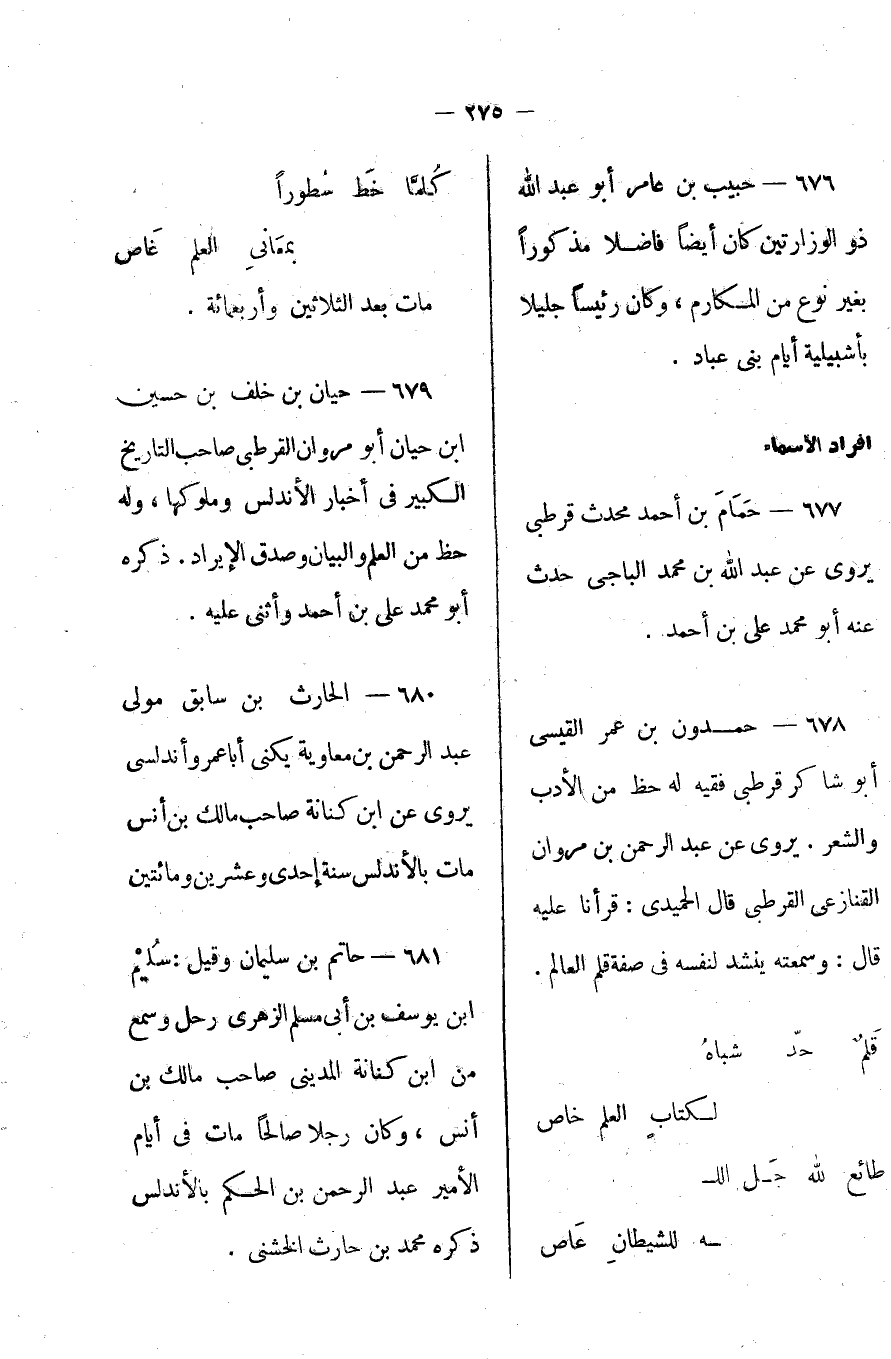 — ٢٧٥ —
٦٧٦ — حبيب بن عامر أبو عبد الله
ذو الوزارتين كان أيضاً فاضلا مذكوراً
بغير نوع من المكارم ، وكان رئيساً جليلا
بأشبيلية أيام بنى عباد .
افراد الأسماء
٦٧٧ — حَمَامَ بن أحمد محدث قرطبى
يروى عن عبد الله بن محمد الباجى حدث
عنه أبو محمد على بن أحمد .
٦٧٨ — حمدون بن عمر القيسى
أبو شاكر قرطبى فقيه له حظ من الأدب
والشعر . يروى عن عبد الرحمن بن مروان
القنازعى القرطبى قال الحميدى : قرأنا عليه
قال : وسمعته ينشد لنفسه فى صفة قلم العالم .
قَلمٌ حدّ شباهُ
لكتابٍ العلم خاص
طائع لله جَل اللـ
ـه للشيطانِ عَاص
كُلمَّا خَط سُطوراً
بمَعَانىِ العلم غَاص
مات بعد الثلاثين وأربعمائة .
٦٧٩ — حيان بن خلف بن حسين
ابن حيان أبو مروان القرطبى صاحب التاريخ
الكبير فى أخبار الأندلس وملوكها ، وله
حظ من العلم والبيان وصدق الإيراد . ذكره
أبو محمد على بن أحمد وأثنى عليه .
٦٨٠ — الحارث بن سابق مولى
عبد الرحمن بن معاوية يكنى أبا عمرو أندلسى
يروى عن ابن كنانة صاحب مالك بن أنس
مات بالأندلس سنة إحدى وعشرين ومائتين
٦٨١ — حاتم بن سليمان وقيل : سُليْم
ابن يوسف بن أبى مسلم الزهرى رحل وسمع
من ابن كنانة المدينى صاحب مالك بن
أنس ، وكان رجلا صالحًا مات فى أيام
الأمير عبد الرحمن بن الحكم بالأندلس
ذكره محمد بن حارث الخشنى .